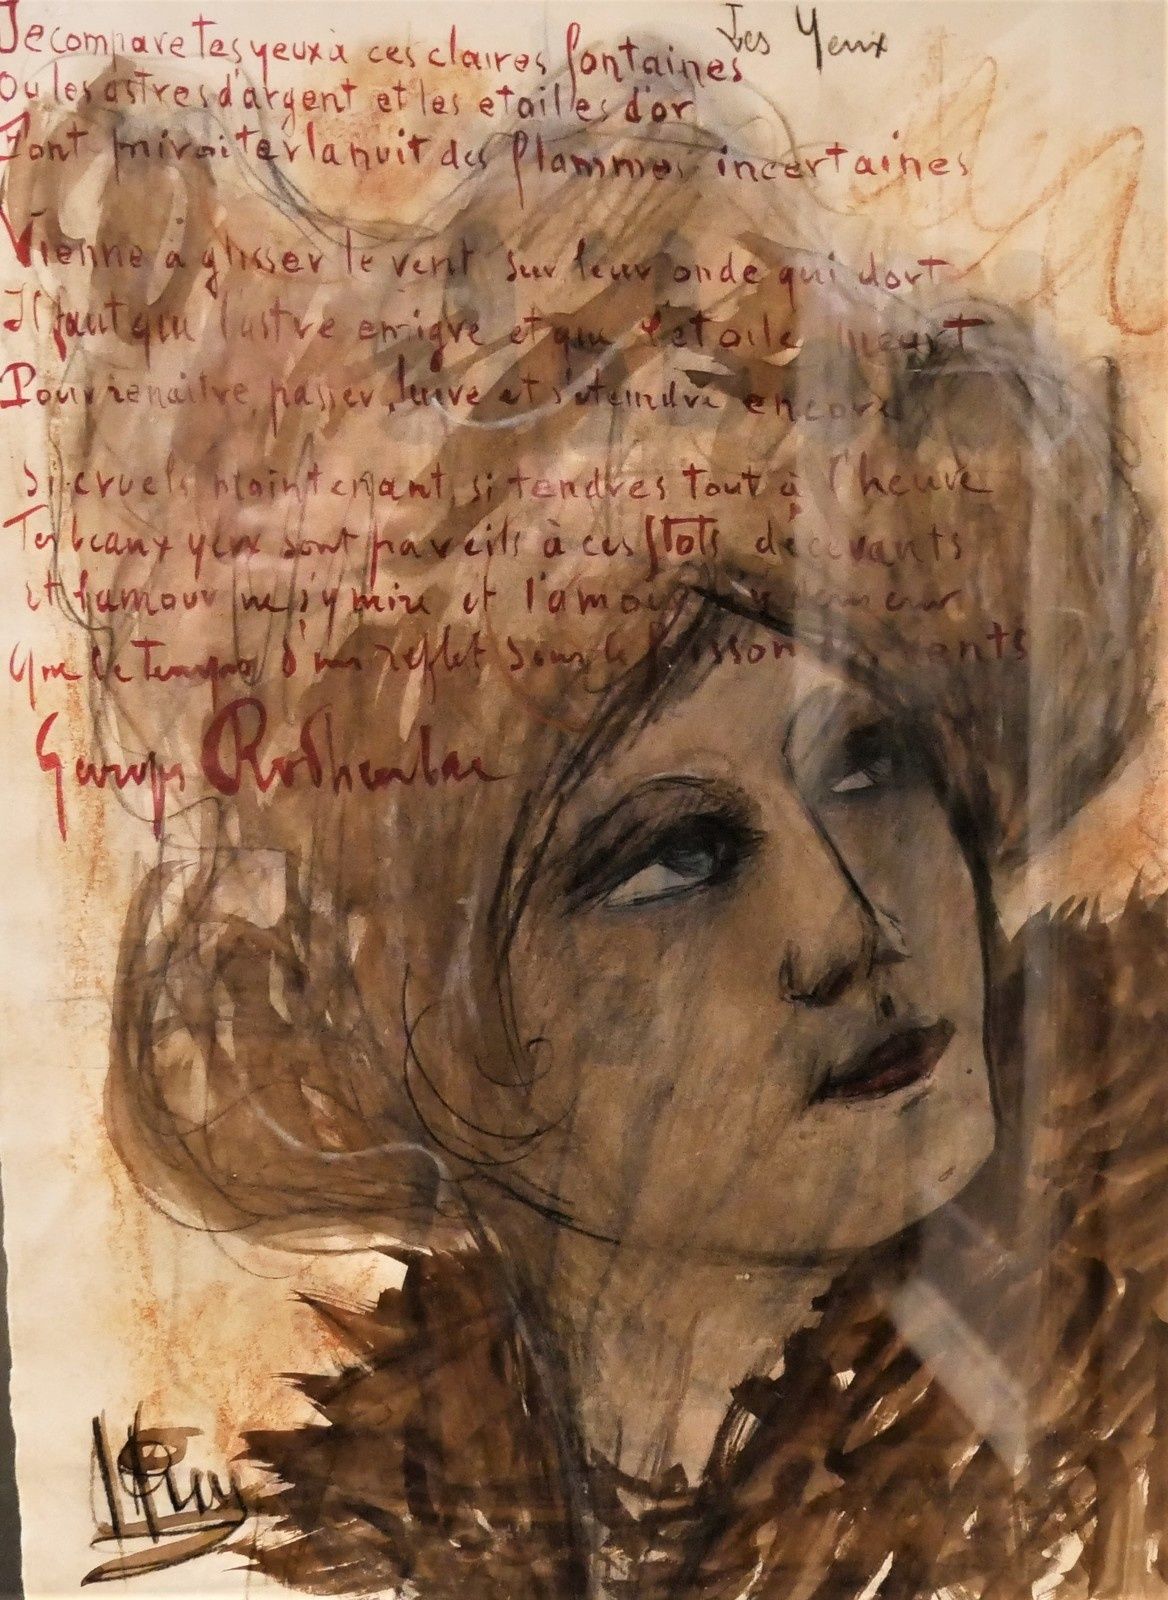 Les Yeux
Je compare tes yeux à ces claires fontaines
Ou les astres d'argent et les etoiles d'or
Font miroiter la nuit des flammes incertaines
Vienne à glisser le vent sur leur onde qui dort
Il faut que l'astre emigre et que l'etoile meurt
Pour renaitre, passer, luire et s'eteindre encore
Si cruels maintenant, si tendres tout à l'heure
Tes beaux yeux sont pareils à ces flots décevants
et l'amour ne s'y mire et l'amour
Que le temps d'un reflet sous le frisson vents
Georges